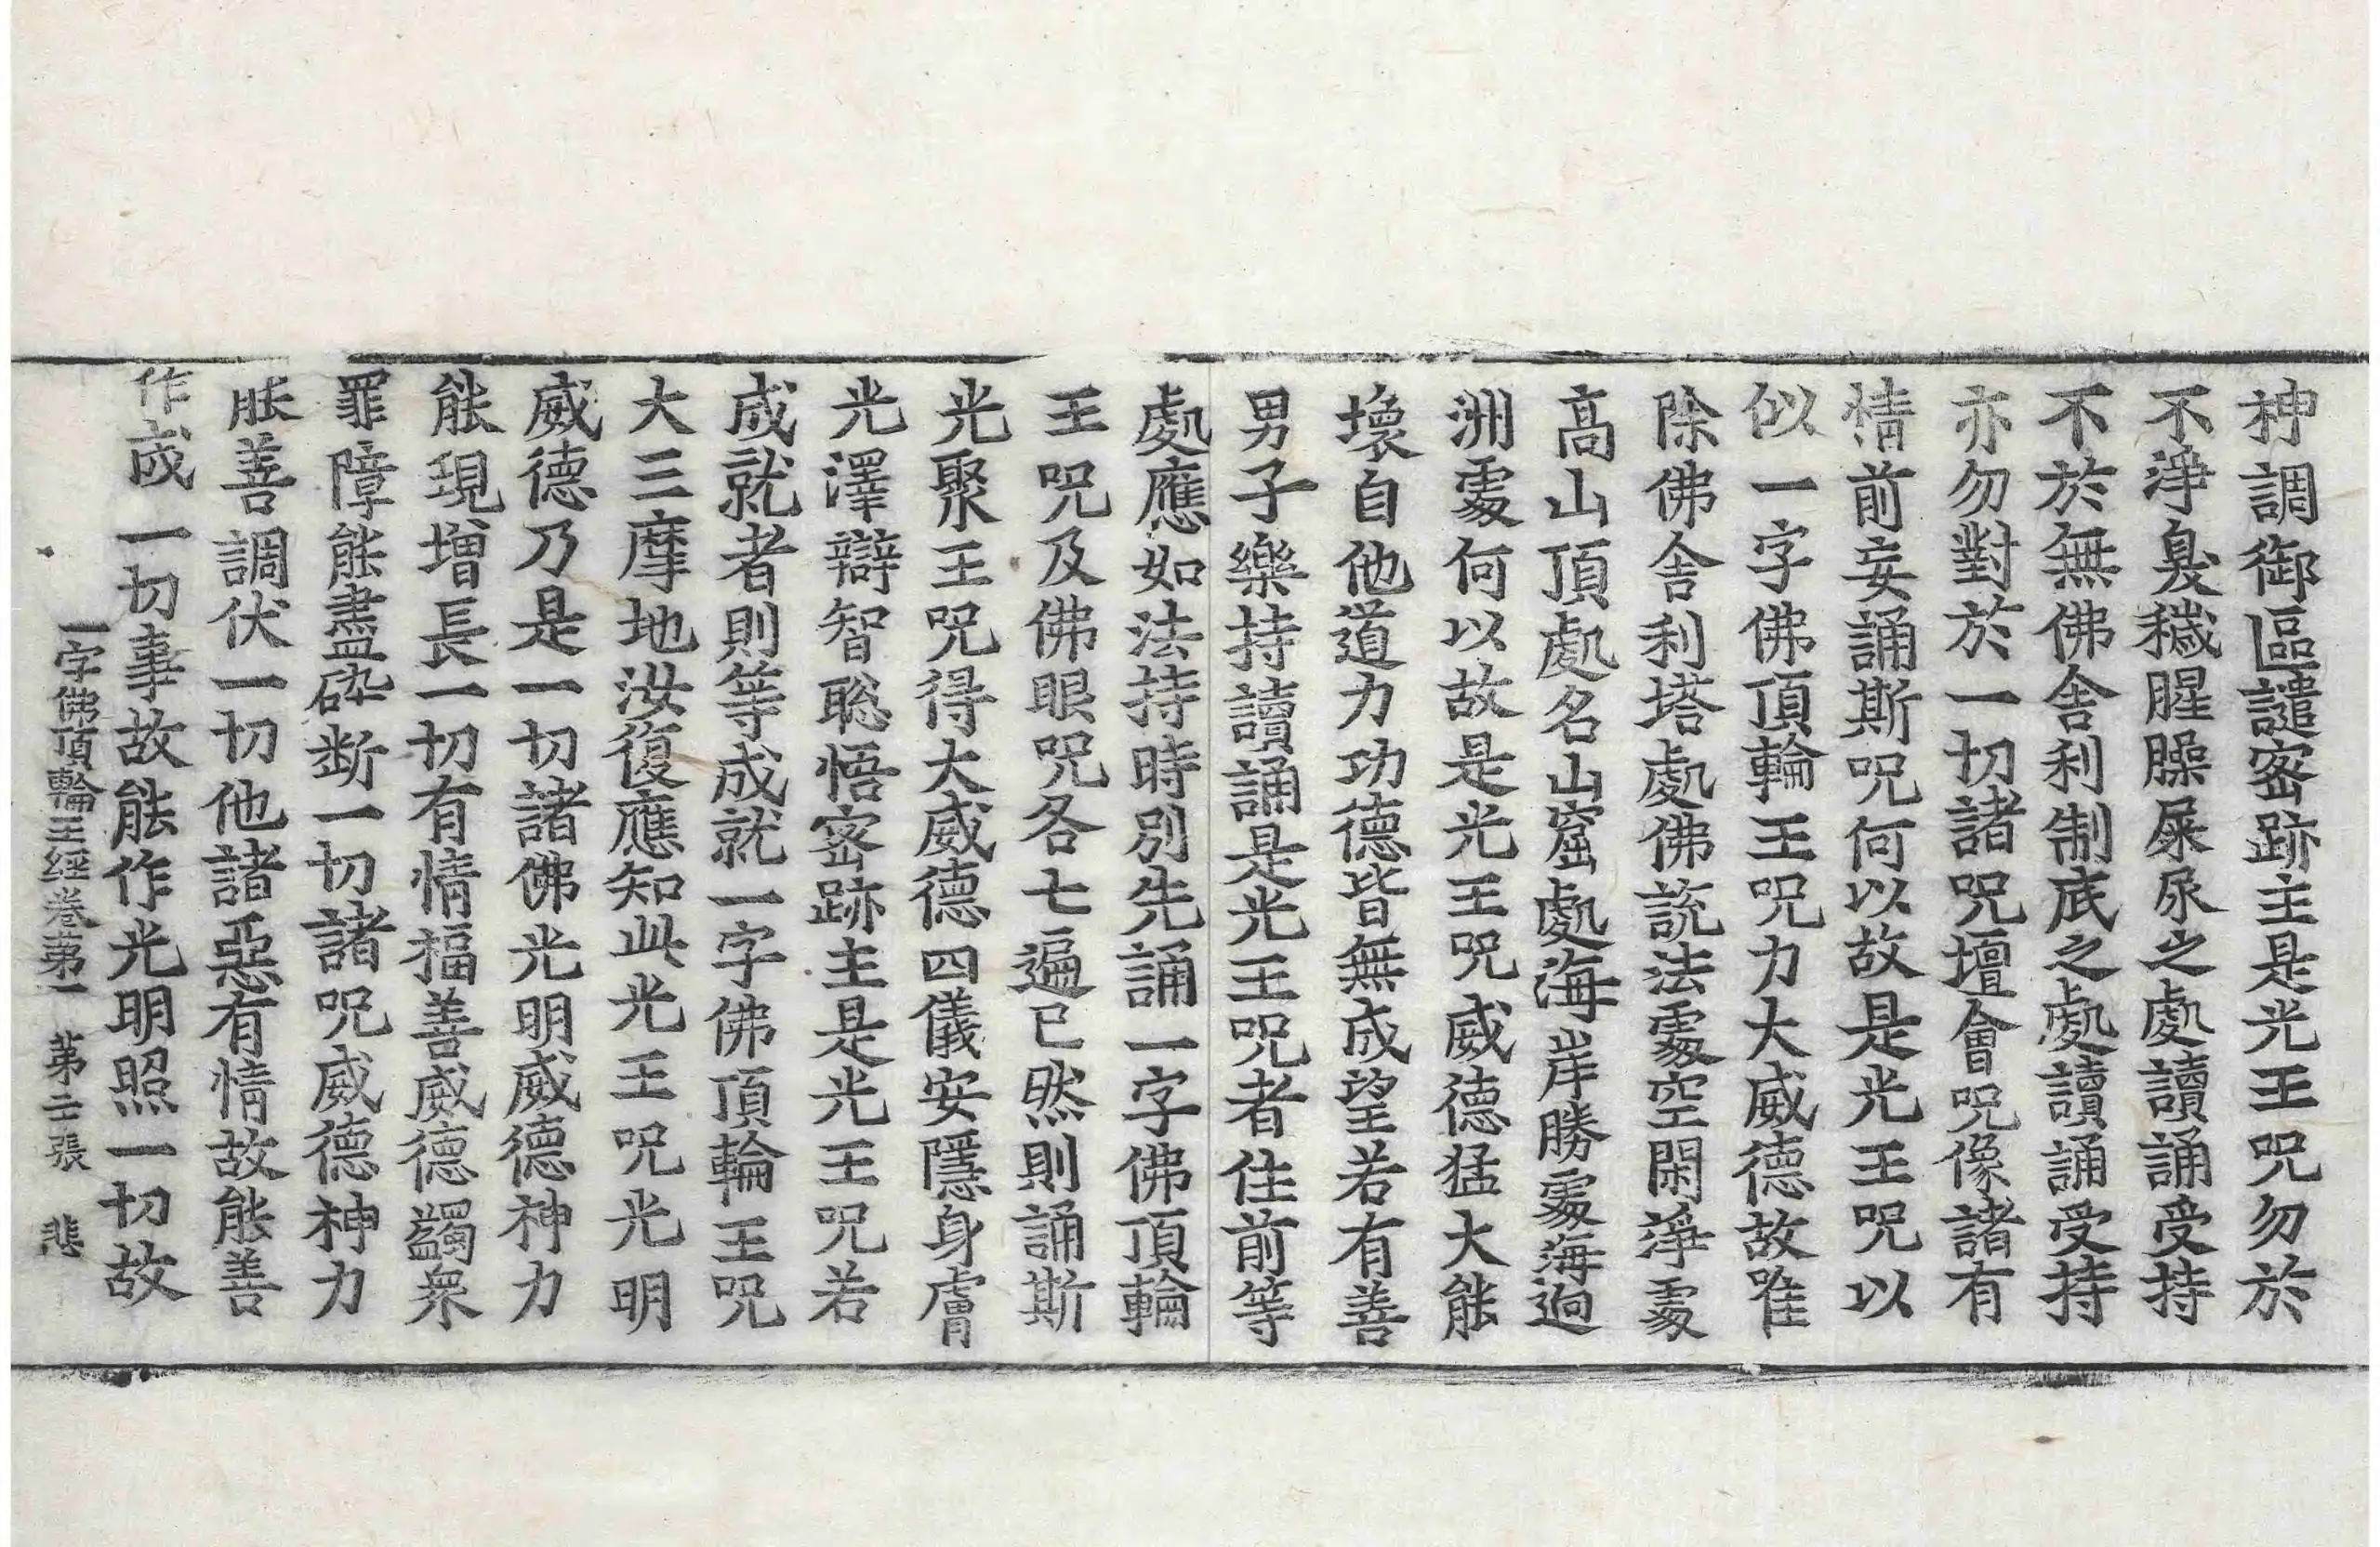 神調御區譴密跡主是光王咒勿於
不淨臭穢腥臊屎尿之處讀誦受持
不於無佛舍利制底之處讀誦受持
亦勿對於一切諸咒壇會咒像諸有
情前妄誦斯咒何以故是光王咒以
似一字佛頂輪王咒力大威德故唯
除佛舍利塔處佛說法處空閑淨處
高山頂處名山窟處海岸勝處海迴
洲處何以故是光王咒威德猛大能
壞自他道力功德皆無成望若有善
男子樂持讀誦是光王咒者住前等
處應如法持時別先誦一字佛頂輪
王咒及佛眼咒各七遍已然則誦斯
光聚王咒得大威德四儀安隱身膚
光澤辯智聡悟密跡主是光王咒若
成就者則等成就一字佛頂輪王咒
大三摩地汝復應知此光王咒光明
威德乃是一切諸佛光明威德神力
能現增長一切有情福善威德蠲衆
罪障能盡砕断一切諸咒威德神力
能善調伏一切他諸惡有情故能善
作成一切事故能作光明照一切故
一字佛頂輪王經卷第一 第二張 悲